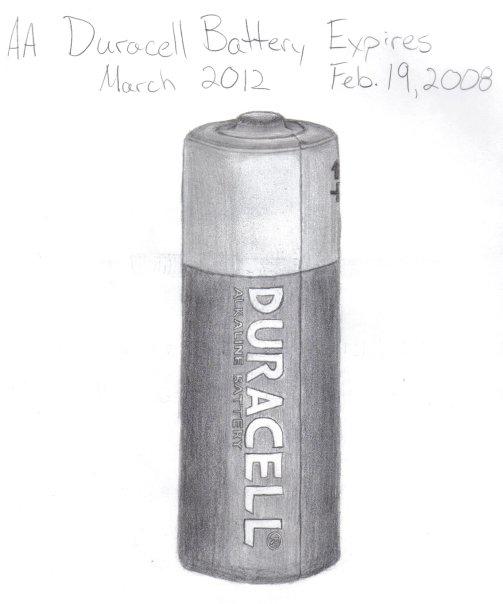 AA Duracell Battery Expires
March 2012 Feb. 19, 2008
+
DURACELL®
ALKALINE BATTERY